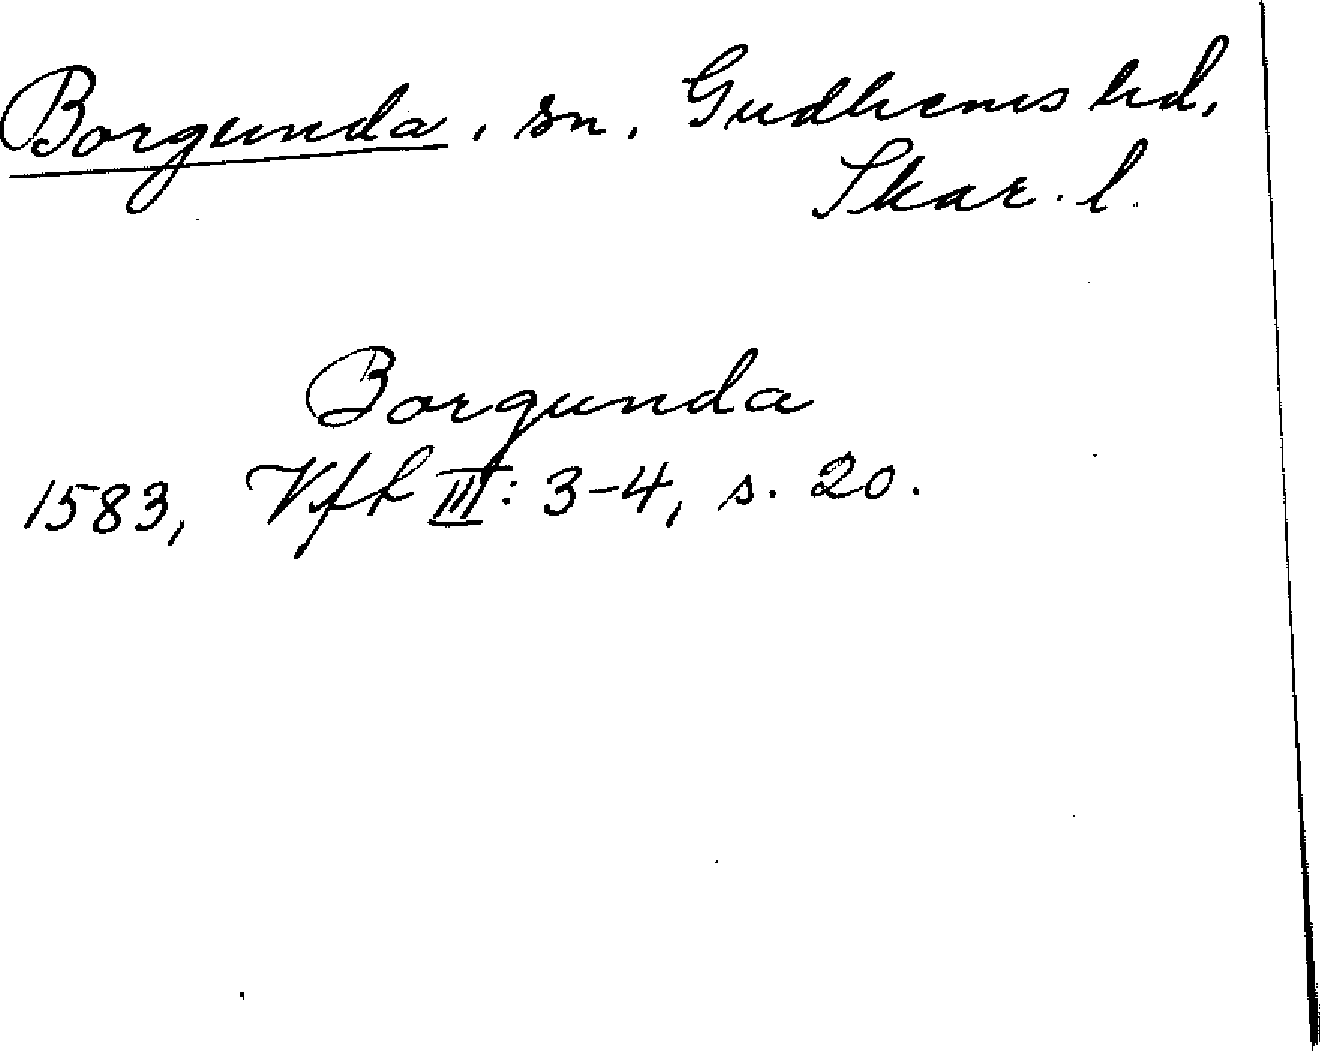 Borgunda, sn, Gudhems hd,
Skar. l.
Borgunda
1583, Vfk III: 3-4, s. 20.